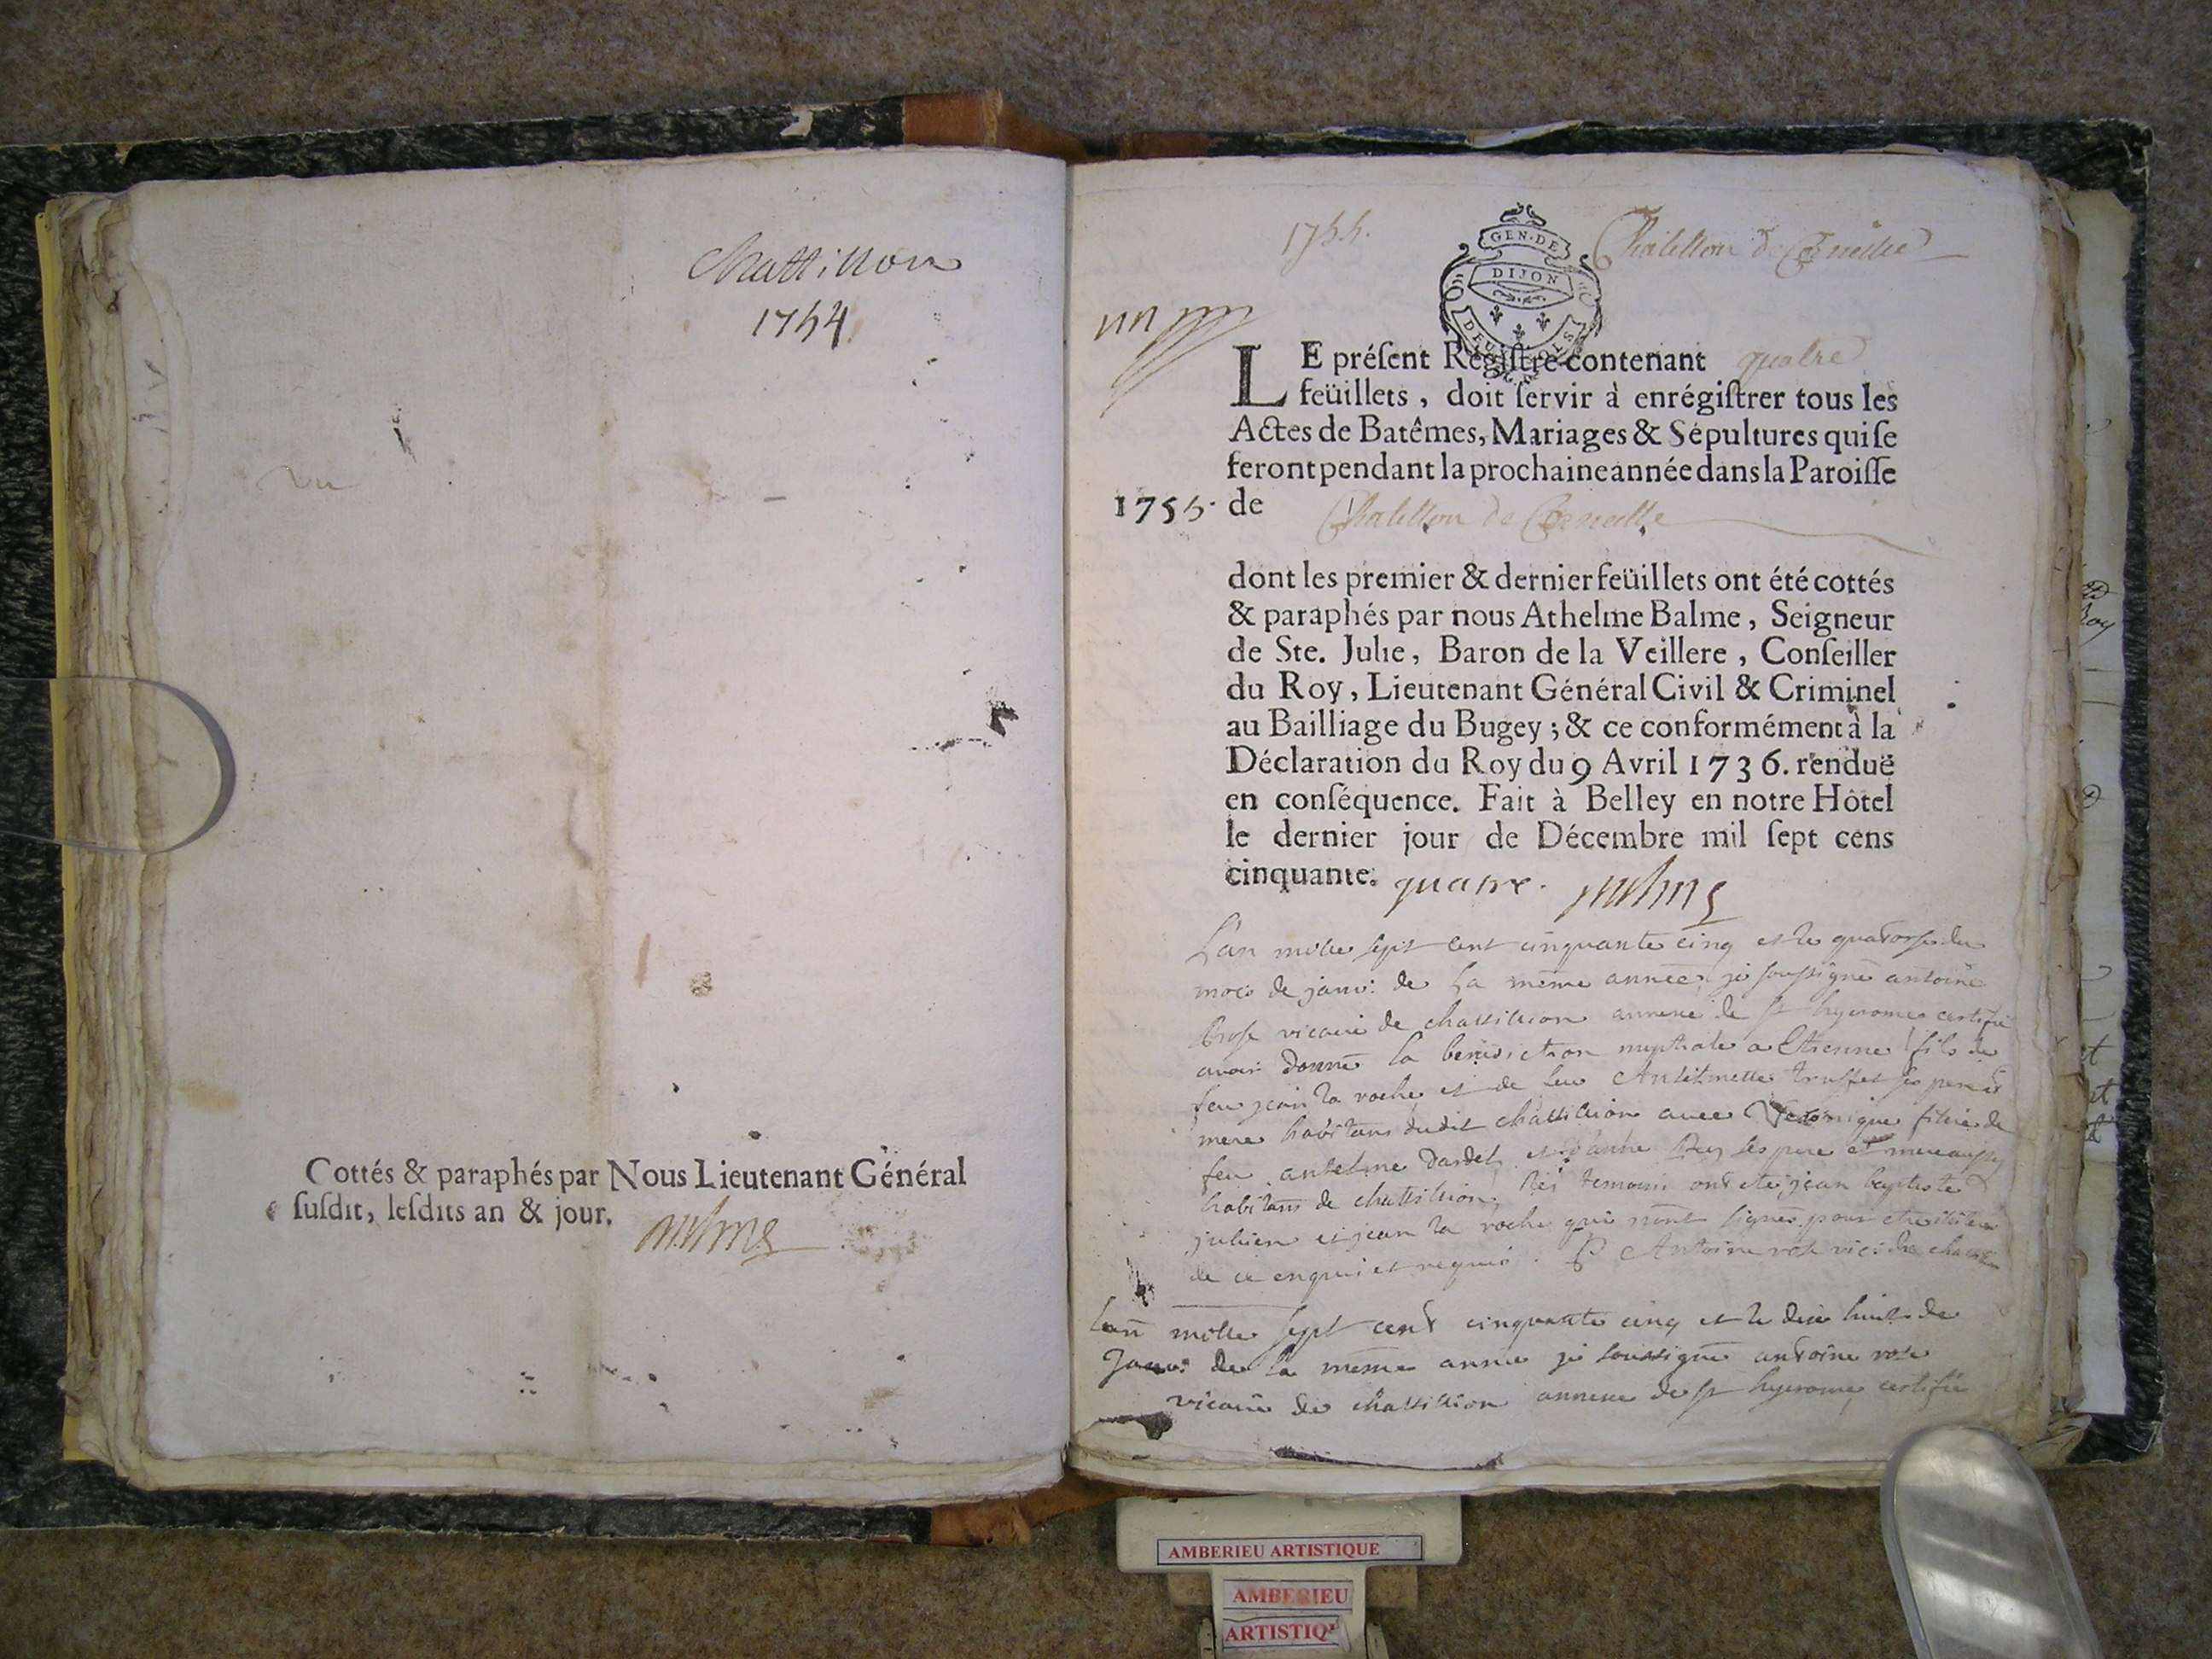 Chattillon
1754
vu
Cottés & paraphés par Nous Lieutenant Général
ſuſdit, leſdits an & jour.
1755.
GEN·DE
DIJON
Chatillon de Corneille
un
LE préſent Regiſtre contenant quatre
feüillets, doit ſervir à enrégiſtrer tous les
Actes de Batêmes, Mariages & Sépultures qui ſe
feront pendant la prochaine année dans la Paroiſſe
1755. de Chatillon de Corneille
dont les premier & dernier feüillets ont été cottés
& paraphés par nous Athelme Balme, Seigneur
de Ste. Julie, Baron de la Veillere, Conſeiller
du Roy, Lieutenant Général Civil & Criminel
au Bailliage du Bugey; & ce conformément à la
Déclaration du Roy du 9 Avril 1736. renduë
en conſéquence. Fait à Belley en notre Hôtel
le dernier jour de Décembre mil ſept cens
cinquante. quatre.
L'an mille sept cent cinquante cinq et le quatorse du
mois de janv: de la même année, je soussigné antoine
vicaire de chattillion annexe de st hyerome certifie
avoir donné la benediction nuptiale a Etienne fils de
feu jean la roche et de feu Anthelmette truffet ses pere et
mere habitans dudit chattillion avec Veronique fille de
feu antelme dardel et d'anne ses pere et mere aussy
habitans de chattillion, les temoins ont eté jean baptiste
jullien et jean la roche qui n'ont signés pour
de ce enquis et requis. Antoine rose vic: de chatt
L'an mille sept cent cinquante cinq et le dix huit de
Janv: de la même année je soussigné antoine rose
vicaire de chattillion annexe de st hyerome certifie
AMBERIEU ARTISTIQUE
AMBERIEU
ARTISTIQ